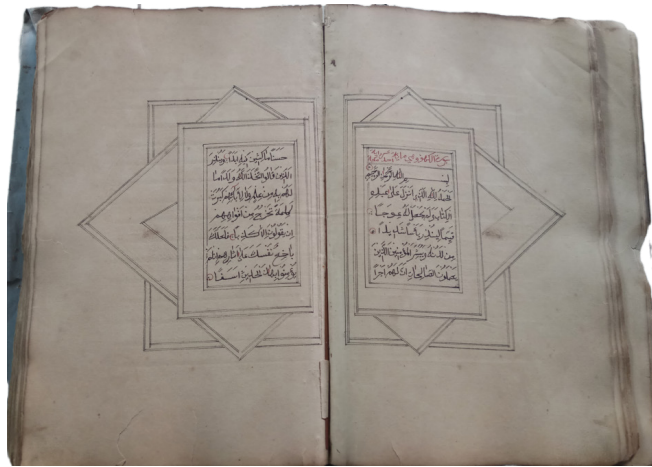 سورة الكهف وهي مائة
بسم الله الرحمن الرحيم
اَلْحَمْدُ لِلّٰهِ الَّذِي اَنْزَلَ عَلٰى عَبْدِهِ
الْكِتَابَ وَلَمْ يَجْعَلْ لَهُ عِوَجًا
قَيِّمًا لِيُنْذِرَ بَأْسًا شَدِيدًا
مِنْ لَدُنْهُ وَيُبَشِّرَ الْمُؤْمِنِينَ الَّذِينَ
يَعْمَلُونَ الصَّالِحَاتِ اَنَّ لَهُمْ اَجْرًا
حَسَنًا مَاكِثِينَ فِيهِ اَبَدًا وَيُنْذِرَ
الَّذِينَ قَالُوا اتَّخَذَ اللّٰهُ وَلَدًا مَا
لَهُمْ بِهِ مِنْ عِلْمٍ وَلَا لِاٰبَائِهِمْ كَبُرَتْ
كَلِمَةً تَخْرُجُ مِنْ اَفْوَاهِهِمْ
اِنْ يَقُولُونَ اِلَّا كَذِبًا فَلَعَلَّكَ
بَاخِعٌ نَفْسَكَ عَلٰى اٰثَارِهِمْ اِنْ لَمْ
يُؤْمِنُوا بِهٰذَا الْحَدِيثِ اَسَفًا